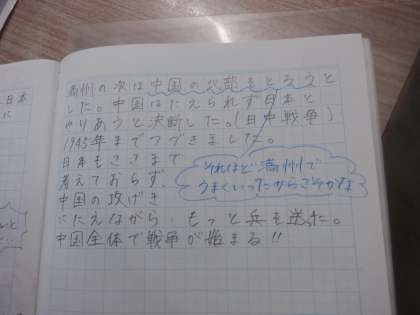 満州の次は中国の北部もとろうと
した。中国はたえられず日本と
やりあうと決断した。(日中戦争)
1945年までつづきました。
日本もそこまで
考えておらず、
中国の攻げき
にたえながら、もっと兵を送った。
中国全体で戦争が始まる!!
それほど満州で
うまくいったからさそかな
日本
に